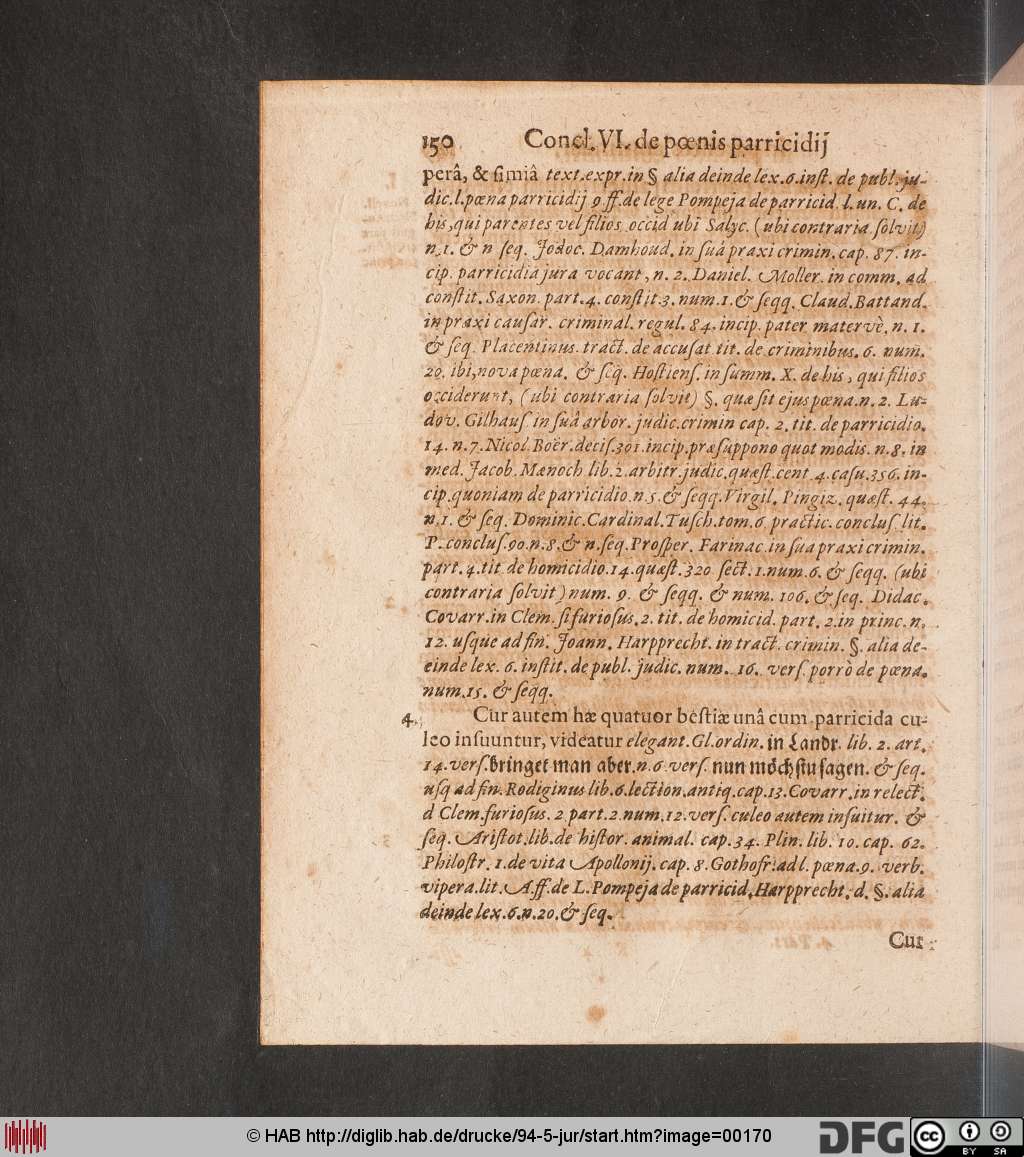 150 Concl. VI. de pœnis parricidij
perâ, & simiâ text. expr. in § alia deinde lex. 6. inst. de publ. ju-
dic. l. pœna parricidij 9 ff. de lege Pompeja de parricid. l. un. C. de
his, qui parentes vel filios occid ubi Salyc. (ubi contraria solvit)
n. 1. & n seq. Jodoc. Damhoud. in suâ praxi crimin. cap. 87. in-
cip. parricidia jura vocant, n. 2. Daniel. Moller. in comm. ad
constit. Saxon. part. 4. constit 3. num. 1. & seqq. Claud. Battand.
in praxi causar. criminal. regul. 84. incip. pater matervè. n. 1.
& seq. Placentinus. tract. de accusat tit. de criminibus. 6. num.
20. ibi, nova pœna. & seq. Hostiens. in summ. X. de his, qui filios
occiderunt, (ubi contraria solvit) §. quæ sit ejus pœna. n. 2. Lu-
dov. Gilhaus. in suâ arbor. judic. crimin cap. 2. tit. de parricidio.
14. n. 7. Nicol. Boër. decis. 301. incip. præsuppono quot modis. n. 8. in
med. Jacob. Mænoch lib. 2. arbitr. judic. quæst. cent 4. casu. 356. in-
cip. quoniam de parricidio. n. 5. & seqq. Virgil. Pingiz. quæst. 44.
n. 1. & seq. Dominic. Cardinal. Tusch. tom. 6. practic. conclus. lit.
P. conclus. 90. n. 8. & n. seq. Prosper. Farinac. in sua praxi crimin.
part. 4. tit. de homicidio. 14. quæst. 320 sect. 1. num. 6. & seqq. (ubi
contraria solvit) num. 9. & seqq. & num. 106. & seq. Didac.
Covarr. in Clem. si furiosus. 2. tit. de homicid. part. 2. in princ. n.
12. usque ad fin. Joann. Harpprecht. in tract. crimin. §. alia de-
einde lex. 6. instit. de publ. judic. num. 16. vers. porrò de pœna.
num. 15. & seqq.
4. Cur autem hæ quatuor bestiæ unâ cum parricida cu-
leo insuuntur, videatur elegant. Gl. ordin. in Landr. lib. 2. art.
14. vers. bringet man aber. n. 6. vers. nun möchstu sagen. & seq.
usq ad fin. Rodiginus lib. 6. lection. antiq. cap. 13. Covarr. in relect.
d Clem. furiosus. 2. part. 2. num. 12. vers. culeo autem insuitur. &
seq. Aristot. lib. de histor. animal. cap. 34. Plin. lib. 10. cap. 62.
Philostr. 1. de vita Apollonij. cap. 8. Gothofr. ad l. pœna. 9. verb.
vipera. lit. A. ff. de L. Pompeja de parricid. Harpprecht. d. §. alia
deinde lex. 6. n. 20. & seq.
Cur
© HAB http://diglib.hab.de/drucke/94-5-jur/start.htm?image=00170
DFG
cc
BY SA